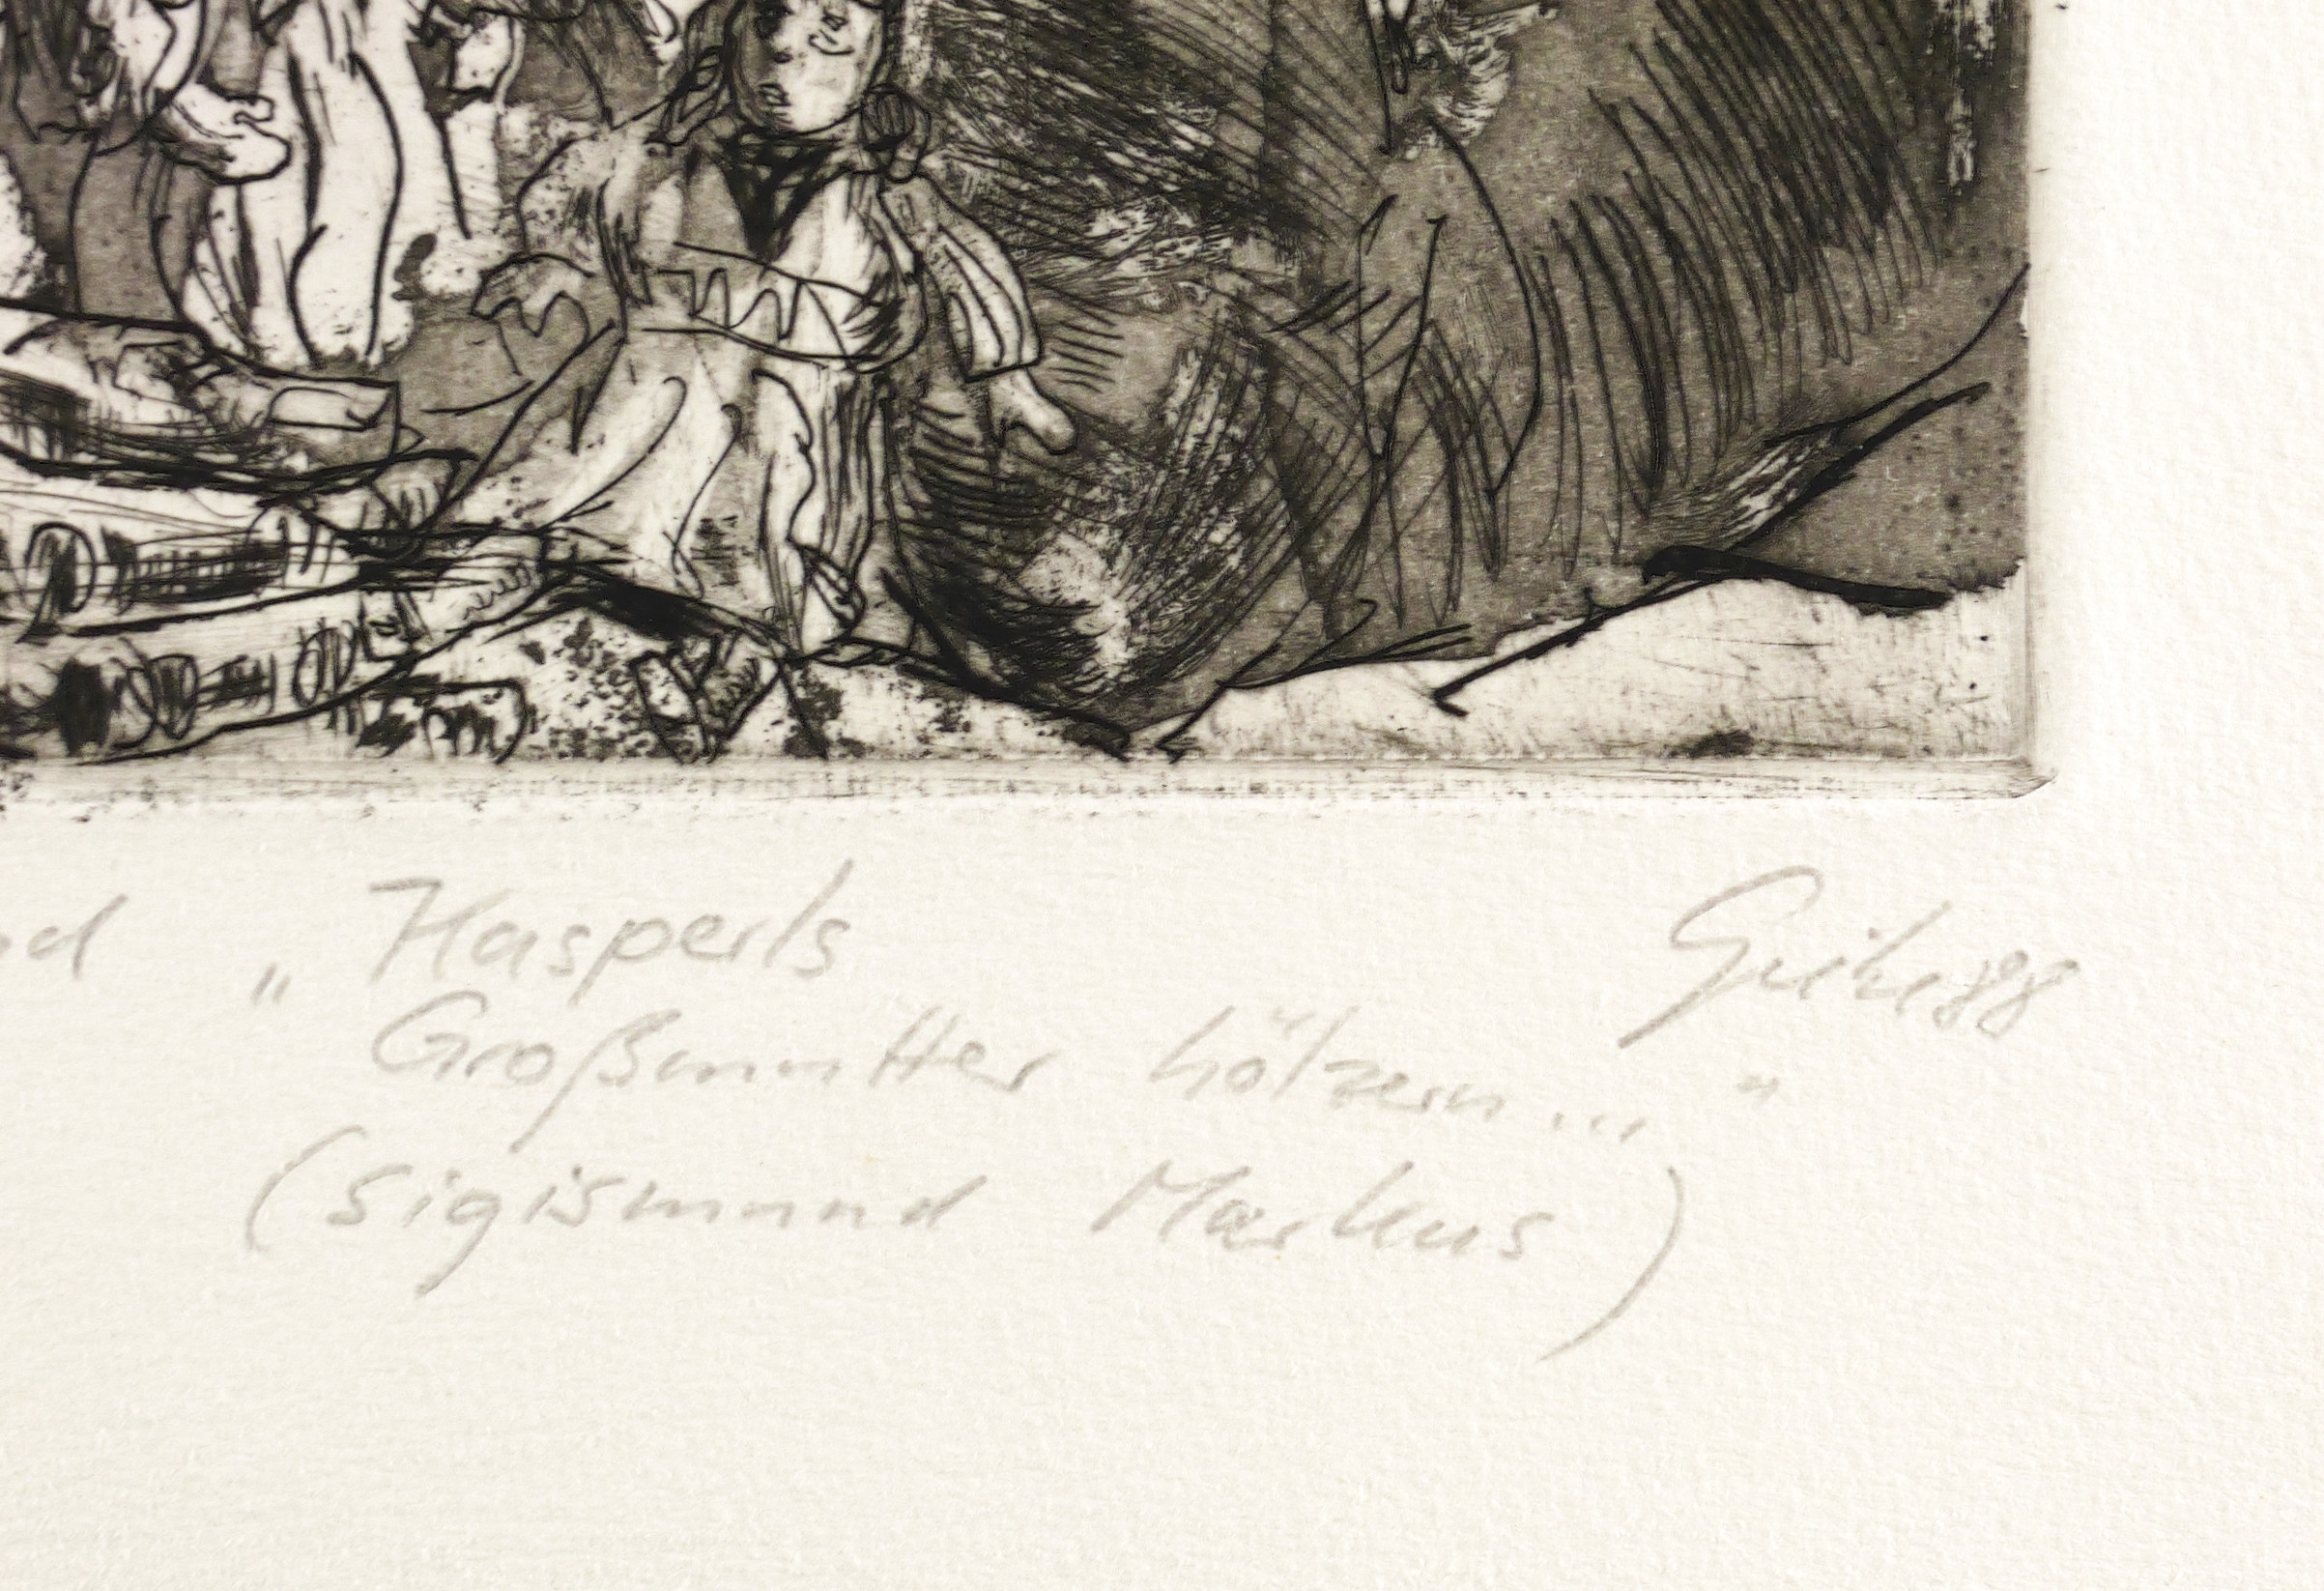 „Kasperls
Großmutter hölzern... "
(Sigismund Markus)
88